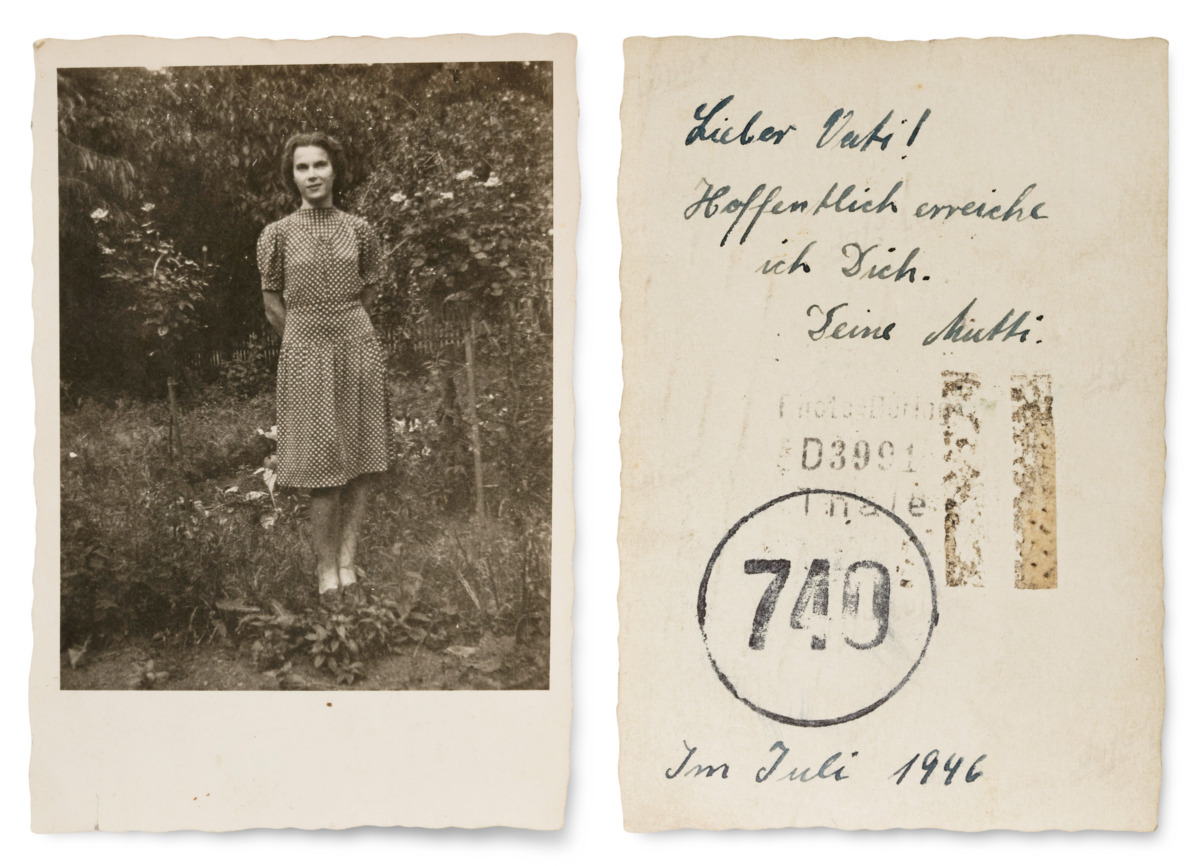 Lieber Vati!
Hoffentlich erreiche
ich Dich.
Deine Mutti.
D3991
Thale
740
Im Juli 1946